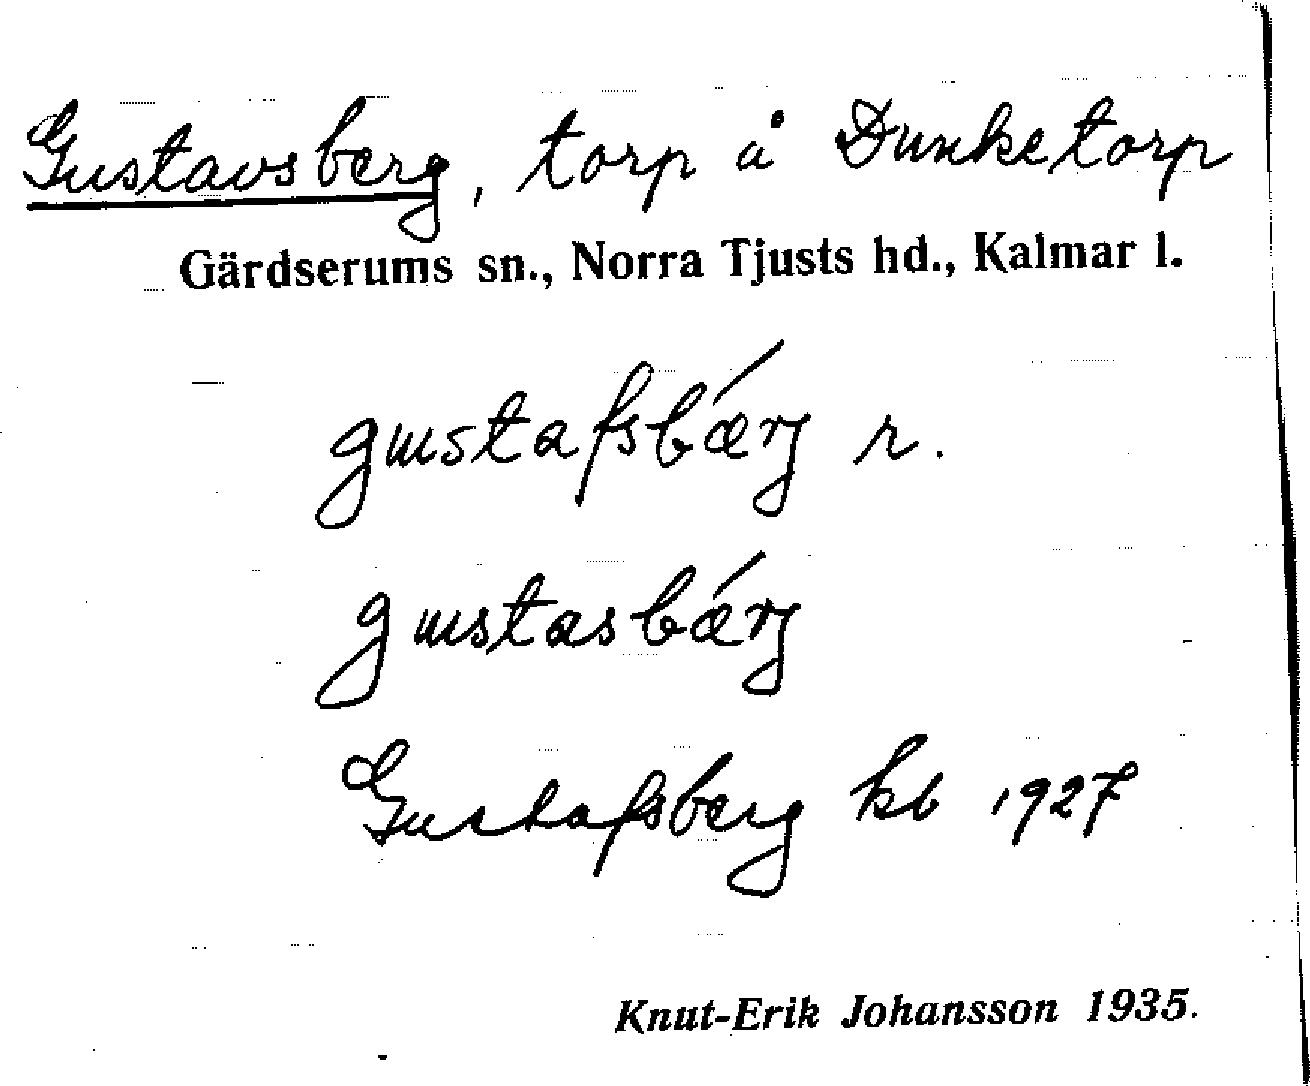 Gustavsberg, torp å Dunketorp
Gärdserums sn., Norra Tjusts hd., Kalmar l.
gustafsbǽrj r.
gustasbǽrj
Gustafsberg kb 1927
Knut-Erik Johansson 1935.